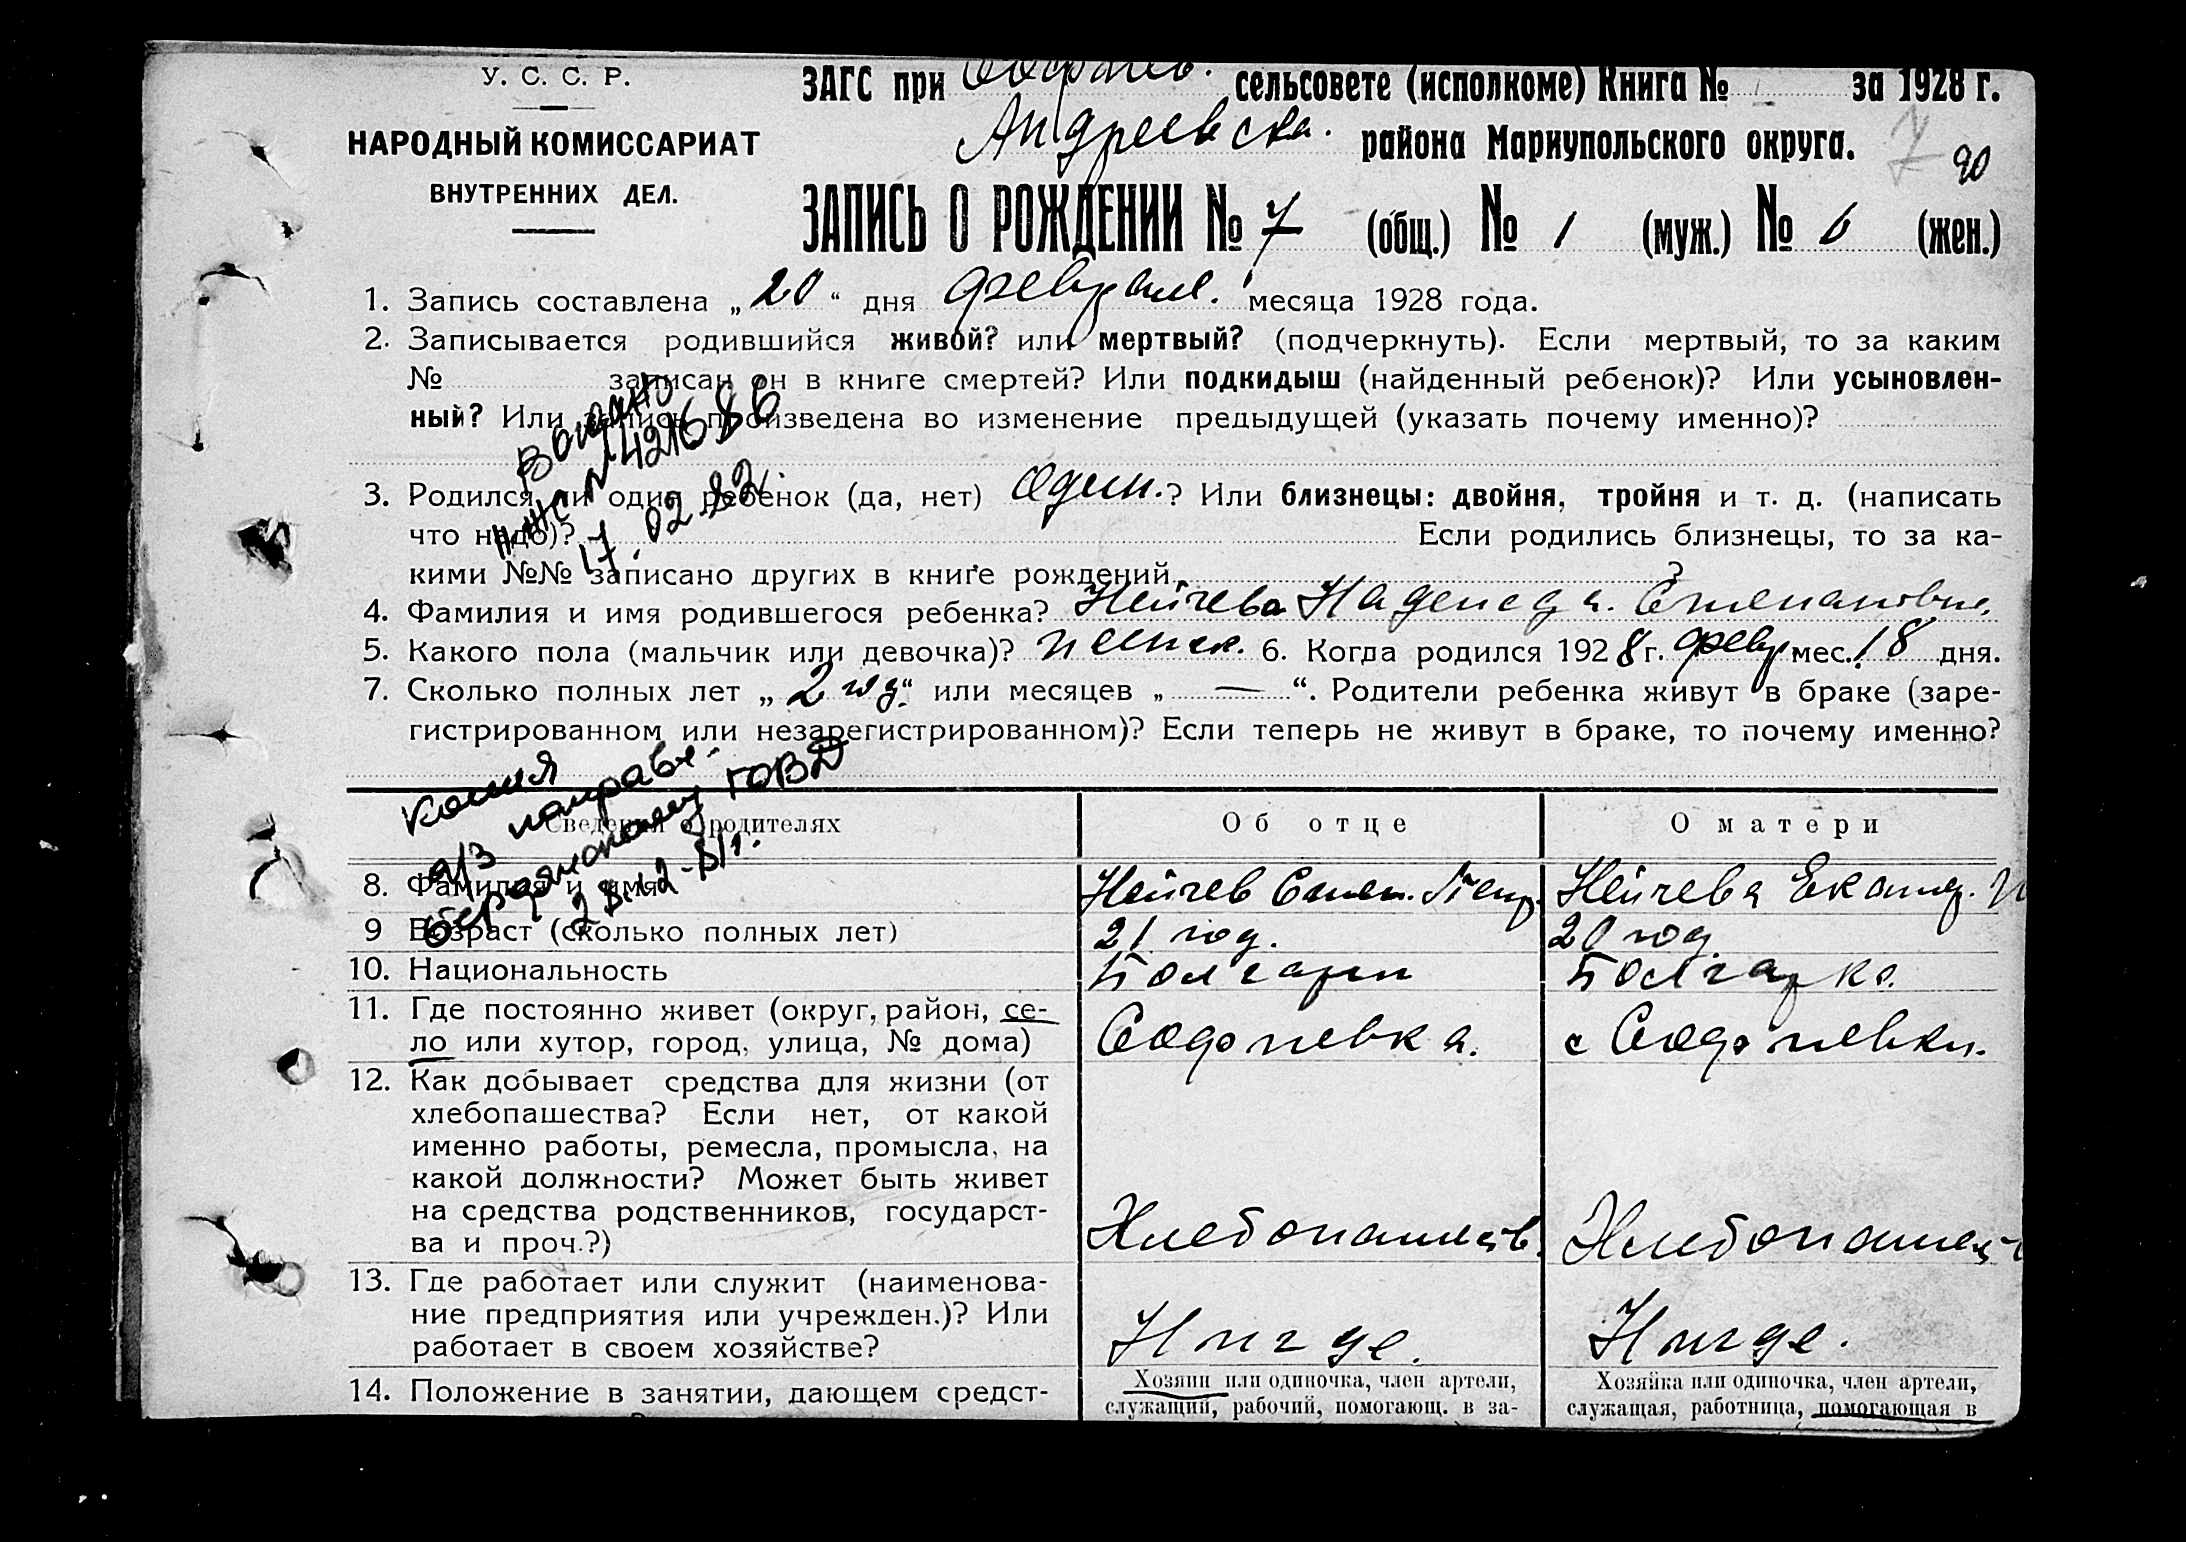 У. С. С. Р.
НАРОДНЫЙ КОМИССАРИАТ
ВНУТРЕННИХ ДЕЛ.
ЗАГС при сельсовете (исполкоме) Книга № за 1928 г.
Андреевска. района Мариупольского округа.
7 90
ЗАПИСЬ О РОЖДЕНИИ № 7 (общ.) № 1 (муж.) № 6 (жен.)
1. Запись составлена „20“ дня феврале. месяца 1928 года.
2. Записывается родившийся живой? или мертвый? (подчеркнуть). Если мертвый, то за каким
№ записан он в книге смертей? Или подкидыш (найденный ребенок)? Или усыновлен-
ный? Или запись произведена во изменение предыдущей (указать почему именно)?
Выдано
№ 421686
17.02.82.
3. Родился ли один ребенок (да, нет) один.? Или близнецы: двойня, тройня и т. д. (написать
что надо)? Если родились близнецы, то за ка-
кими №№ записано других в книге рождений ?
4. Фамилия и имя родившегося ребенка? Нейчева Надежда. Степановна.
5. Какого пола (мальчик или девочка)? женск. 6. Когда родился 1928 г. февр мес. 18 дня.
7. Сколько полных лет „2 год“ или месяцев „ — “. Родители ребенка живут в браке (заре-
гистрированном или незарегистрированном)? Если теперь не живут в браке, то почему именно?
копия
а/з направл.
бердянскому ГОВД
Сведения о родителях Об отце О матери
8. Фамилия и имя Нейчев Степ. Петр. Нейчева Екатер.
9 Возраст (сколько полных лет) 21 год. 20 год
10. Национальность Болгарин Болгарка.
11. Где постоянно живет (округ, район, се-
ло или хутор, город, улица, № дома) Софиевка. с Софиевки.
12. Как добывает средства для жизни (от
хлебопашества? Если нет, от какой
именно работы, ремесла, промысла, на
какой должности? Может быть живет
на средства родственников, государст-
ва и проч.?) Хлебопашеств. Хлебопашест
13. Где работает или служит (наименова-
ние предприятия или учрежден.)? Или
работает в своем хозяйстве? Нигде. Нигде.
14. Положение в занятии, дающем средст-
Хозяин или одиночка, член артели,
служащий, рабочий, помогающ. в за-
Хозяйка или одиночка, член артели,
служащая, работница, помогающая в